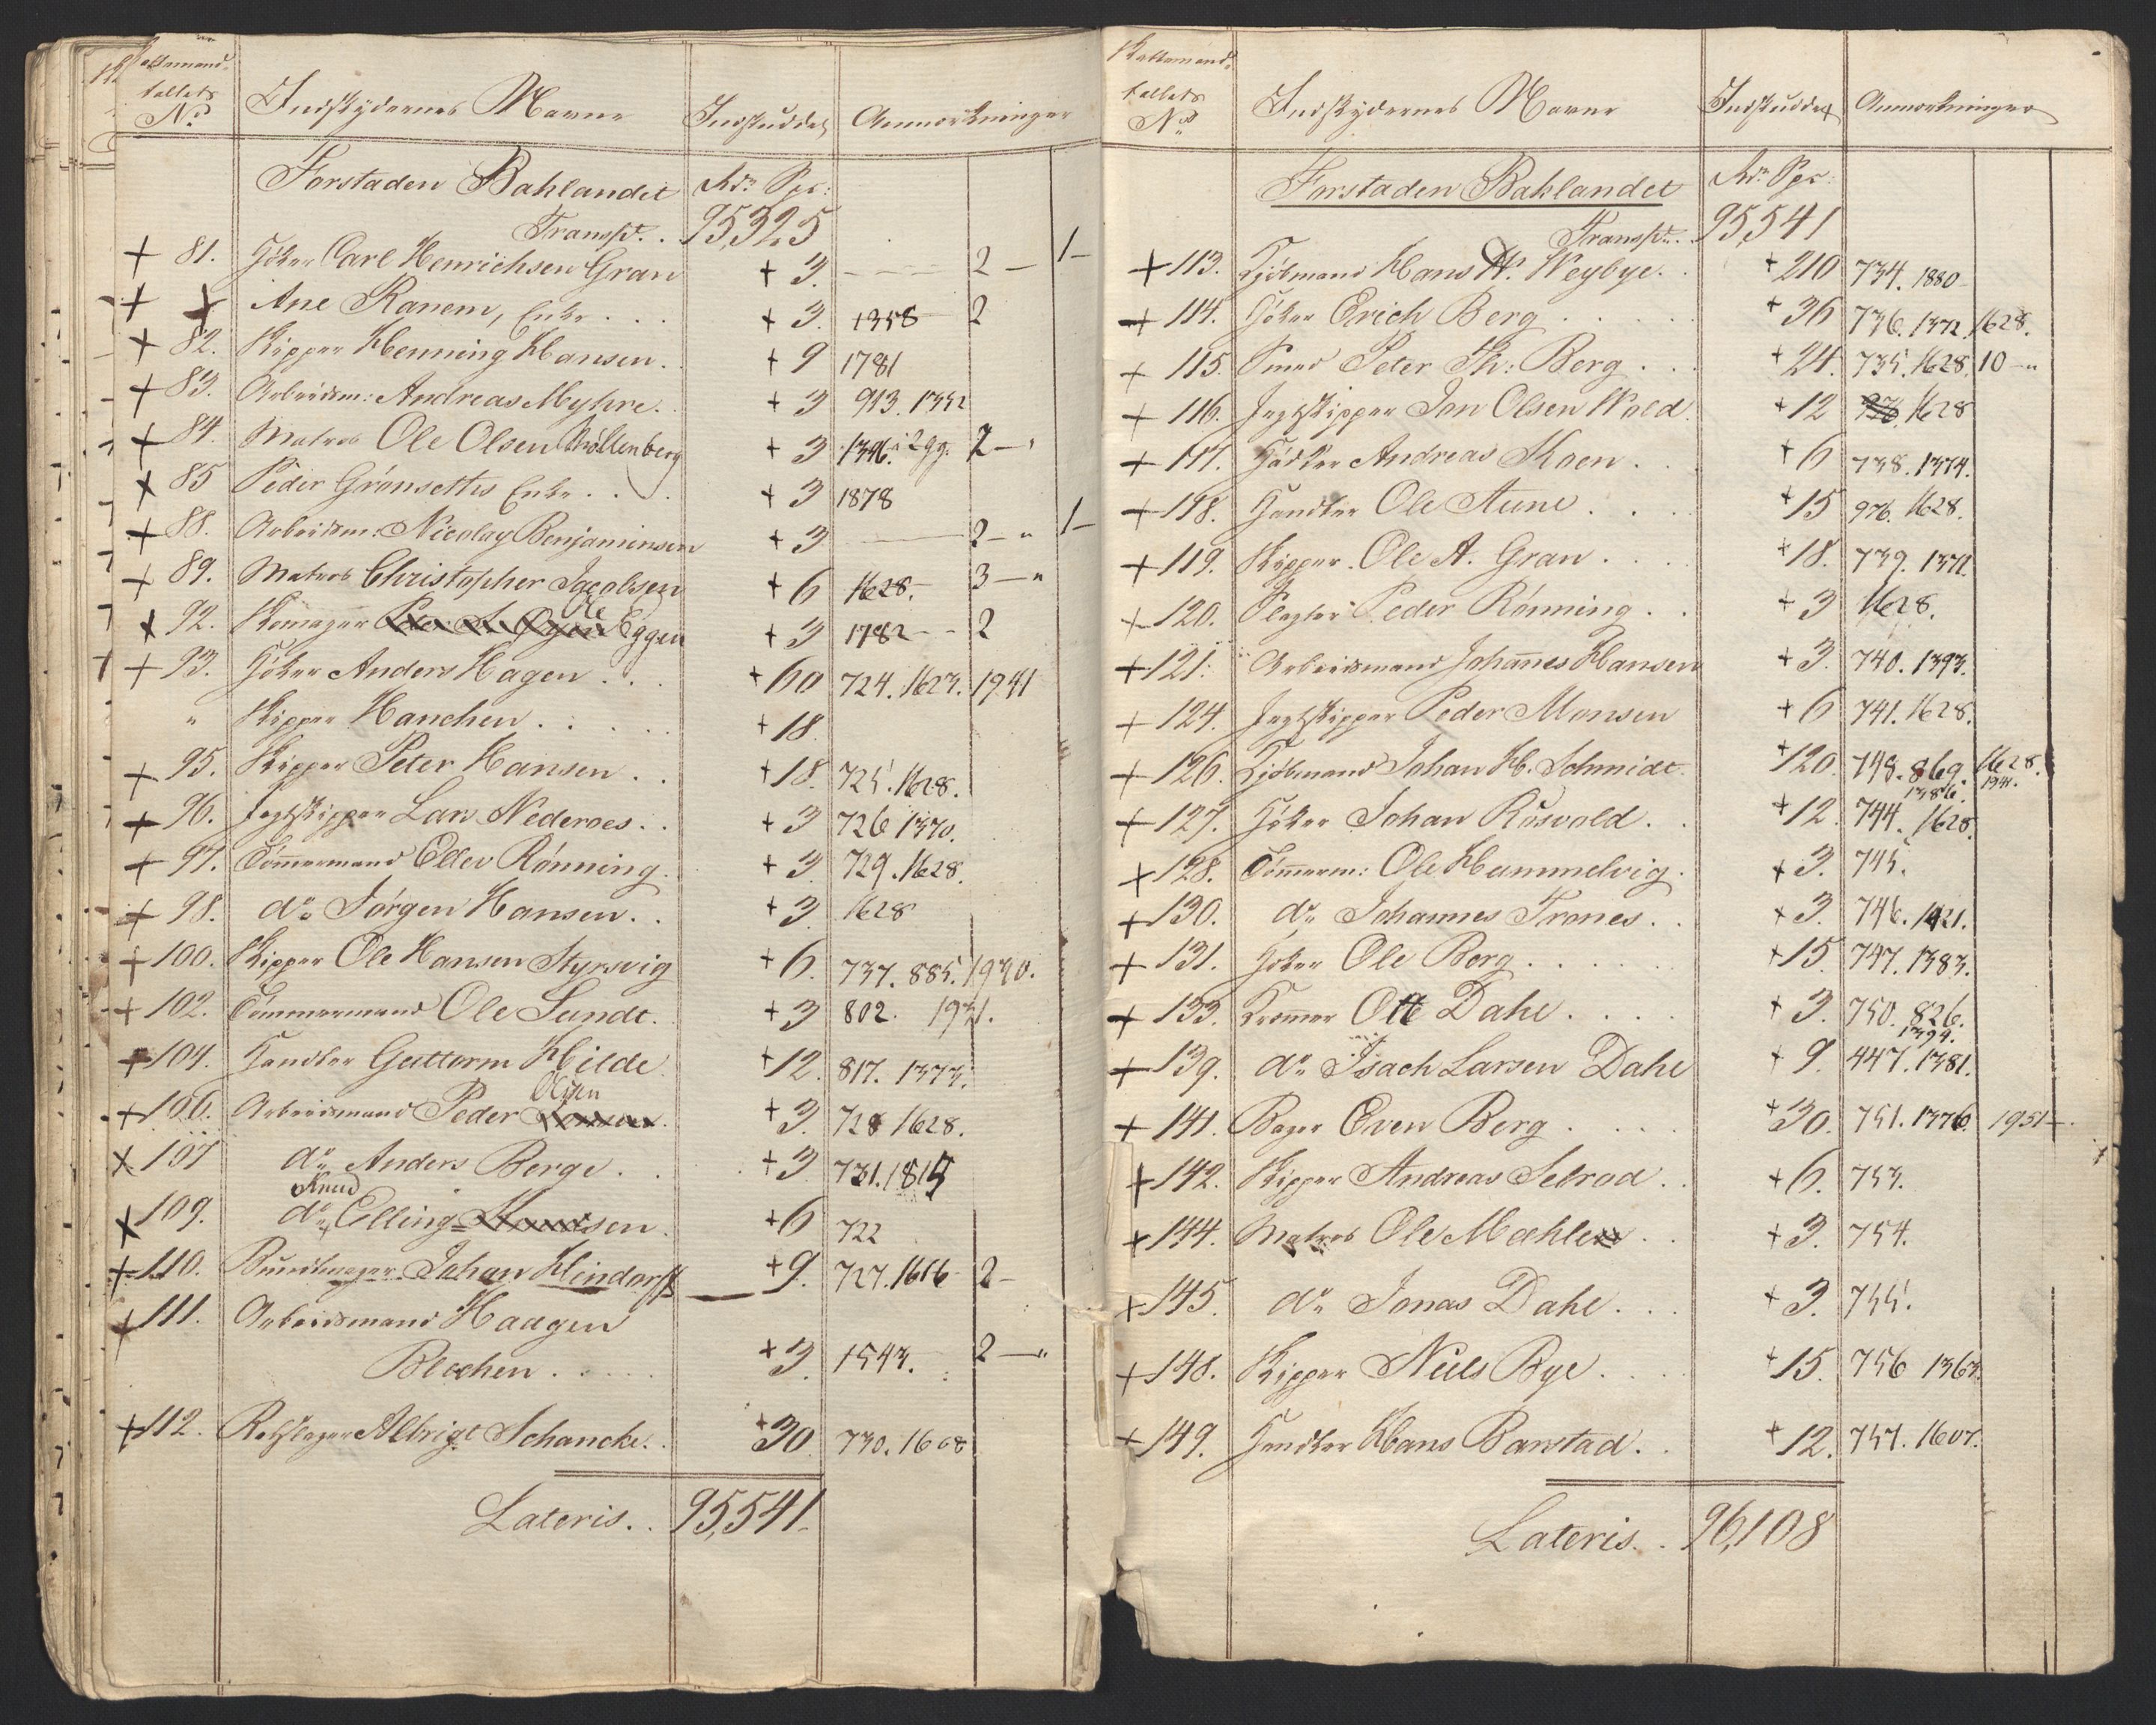 Skattemand-
tallets
No.
Indskydernes Navne
Indskuddet
Anmærkninger
Forstaden Bahlandet Rdr. Spc:
Transpt. . 95,325
+ 81. Höker Carl Henrichsen Gran + 3. — 2 — 1 —
+ + Ane Ranem, Enke . . . + 3. 1358 2
+ 82. Skipper Henning Hansen. + 9 1781
+ 83. Arbeidsm: Andreas Myhre. + 3 913. 1352
+ 84. Matros Ole Olsen Möllenberg + 3 1396. 2 — "
+ 85 Peder Grönsethis Enke . . . + 3 1878
+ 88. Arbeidsm: Nicolay Benjaminsen + 3 — 2 — " 1 —
+ 89. Matros Christopher Jacobsen + 6 1628. — 3 — "
+ 92. Skomager Ole Eggen + 3 1782 — 2
+ 93. Höker Anders Hagen . . . + 60 724. 1623. 1941
" Skipper Hanchen . . . . + 18.
+ 95. Skipper Peter Hansen . . + 18. 725. 1628.
+ 96. Jagtskipper Lars Nederaes . . + 3 726 1370.
+ 97. Tömmermand Ellev Rönning. + 3 729. 1628.
+ 98. do Jörgen Hansen . . + 3 1628
+ 100. Skipper Ole Hansen Styrsvig + 6. 737. 885. 1930.
+ 102. Tömmermand Ole Sundt. + 3 802. 1931.
+ 104. Handler Guttorm Hilde + 12. 817. 1373.
+ 106. Arbeidsmand Peder Olsen + 3. 728 1628.
+ 107 do Anders Berge . . + 3 731. 1815
+ 109. do Knud Ellingsen. + 6 722
+ 110. Buntmager Johan Hindorff + 9. 727. 1616 2 —
+ 111. Arbeidsmand Haagen
Blechen . . . . . + 3. 1543. 2 — "
+ 112. Rebslager Albrigt Schancke. . + 30. 730. 1608
Lateris. . 95,541.
Skattemand-
tallets
No.
Indskydernes Navne
Indskuddet
Anmærkninger
Forstaden Bahlandet Rdr. Spc:
Transpt. . 95,541
+ 113. Kjöbmand Hans H. Weybye. . + 210 734. 1880
+ 114. Höker Erich Berg . . . . + 36 736. 1372. 1628.
+ 115. Smed Peter Th: Berg . . . + 24. 735. 1628. 10 — "
+ 116. Jagtskipper Jon Olsen Wold + 12 1628
+ 117. Höker Andreas Moen . . . + 6 738. 1374.
+ 118. Handler Ole Aune . . . . + 15 976. 1628.
+ 119. Skipper Ole A. Gran . . . . + 18. 739. 1371.
+ 120. Slagter Peder Rönning . . + 3 1628.
+ 121. Arbeidsmand Johannes Hansen + 3. 740. 1393.
+ 124. Jagtskipper Peder Monsen + 6 741. 1628.
+ 126. Kjöbmand Johan H. Schmidt. + 120. 748. 869. 1628.
1386. 1941.
+ 127. Höker Johan Rosvold . . + 12. 744. 1628.
+ 128. Tömmerm: Ole Hummelvig. + 3. 745.
+ 130. do Johannes Trones . . + 3. 746. 1421.
+ 131. Höker Ole Berg . . . . . + 15. 747. 1383.
+ 133. Kræmmer Ott Dahl . . . . + 3. 750. 826.
1394.
+ 139. do Isach Larsen Dahl + 9. 447. 1381.
+ 141. Bager Even Berg . . . . + 30. 751. 1376. 1951
+ 142. Skipper Andreas Selrod . . + 6. 753.
+ 144. Matros Ole Mæhle . . + 3. 754.
+ 145. do Jonas Dahl . . . + 3. 755.
+ 148. Skipper Niels Bye . . . . + 15. 756 1363.
+ 149. Handler Hans Barstad . . + 12. 757. 1607.
Lateris. . 96,108